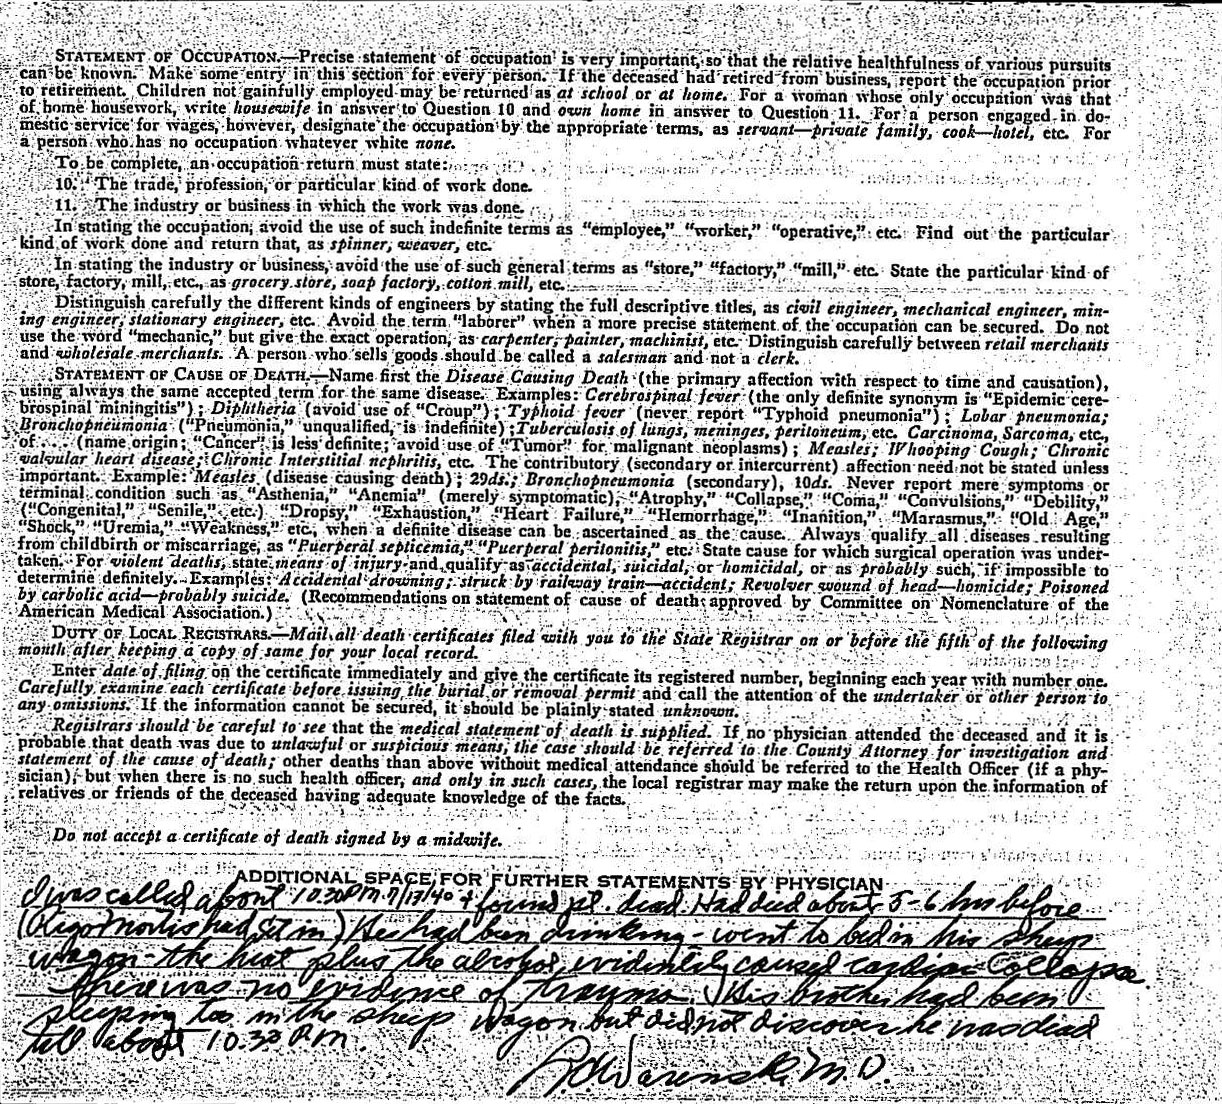 STATEMENT OF OCCUPATION.—Precise statement of occupation is very important, so that the relative healthfulness of various pursuits
can be known. Make some entry in this section for every person. If the deceased had retired from business, report the occupation prior
to retirement. Children not gainfully employed may be returned as at school or at home. For a woman whose only occupation was that
of home housework, write housewife in answer to Question 10 and own home in answer to Question 11. For a person engaged in do-
mestic service for wages, however, designate the occupation by the appropriate terms, as servant—private family, cook—hotel, etc. For
a person who has no occupation whatever white none.
To be complete, an occupation return must state:
10. The trade, profession, or particular kind of work done.
11. The industry or business in which the work was done.
In stating the occupation, avoid the use of such indefinite terms as "employee," "worker," "operative," etc. Find out the particular
kind of work done and return that, as spinner, weaver, etc.
In stating the industry or business, avoid the use of such general terms as "store," "factory," "mill," etc. State the particular kind of
store, factory, mill, etc., as grocery store, soap factory, cotton mill, etc.
Distinguish carefully the different kinds of engineers by stating the full descriptive titles, as civil engineer, mechanical engineer, min-
ing engineer, stationary engineer, etc. Avoid the term "laborer" when a more precise statement of the occupation can be secured. Do not
use the word "mechanic," but give the exact operation, as carpenter, painter, machinist, etc. Distinguish carefully between retail merchants
and wholesale merchants. A person who sells goods should be called a salesman and not a clerk.
STATEMENT OF CAUSE OF DEATH.—Name first the Disease Causing Death (the primary affection with respect to time and causation),
using always the same accepted term for the same disease. Examples: Cerebrospinal fever (the only definite synonym is "Epidemic cere-
brospinal miningitis"); Diphtheria (avoid use of "Croup"); Typhoid fever (never report "Typhoid pneumonia"); Lobar pneumonia;
Bronchopneumonia ("Pneumonia," unqualified, is indefinite); Tuberculosis of lungs, meninges, peritoneum, etc. Carcinoma, Sarcoma, etc.,
of.... (name origin; "Cancer" is less definite; avoid use of "Tumor" for malignant neoplasms); Measles; Whooping Cough; Chronic
valvular heart disease; Chronic Interstitial nephritis, etc. The contributory (secondary or intercurrent) affection need not be stated unless
important. Example: Measles (disease causing death); 29ds.; Bronchopneumonia (secondary), 10ds. Never report mere symptoms or
terminal condition such as "Asthenia," "Anemia" (merely symptomatic), "Atrophy," "Collapse," "Coma," "Convulsions," "Debility,"
("Congenital," "Senile," etc.) "Dropsy," "Exhaustion," "Heart Failure," "Hemorrhage," "Inanition," "Marasmus," "Old Age,"
"Shock," "Uremia," "Weakness," etc., when a definite disease can be ascertained as the cause. Always qualify all diseases resulting
from childbirth or miscarriage, as "Puerperal septicemia," "Puerperal peritonitis," etc. State cause for which surgical operation was under-
taken. For violent deaths, state means of injury and qualify as accidental, suicidal, or homicidal, or as probably such, if impossible to
determine definitely. Examples: Accidental drowning; struck by railway train—accident; Revolver wound of head—homicide; Poisoned
by carbolic acid—probably suicide. (Recommendations on statement of cause of death approved by Committee on Nomenclature of the
American Medical Association.)
DUTY OF LOCAL REGISTRARS.—Mail all death certificates filed with you to the State Registrar on or before the fifth of the following
month after keeping a copy of same for your local record.
Enter date of filing on the certificate immediately and give the certificate its registered number, beginning each year with number one.
Carefully examine each certificate before issuing the burial or removal permit and call the attention of the undertaker or other person to
any omissions. If the information cannot be secured, it should be plainly stated unknown.
Registrars should be careful to see that the medical statement of death is supplied. If no physician attended the deceased and it is
probable that death was due to unlawful or suspicious means, the case should be referred to the County Attorney for investigation and
statement of the cause of death; other deaths than above without medical attendance should be referred to the Health Officer (if a phy-
sician); but when there is no such health officer, and only in such cases, the local registrar may make the return upon the information of
relatives or friends of the deceased having adequate knowledge of the facts.
Do not accept a certificate of death signed by a midwife.
ADDITIONAL SPACE FOR FURTHER STATEMENTS BY PHYSICIAN
I was called about 10.30 P.M. 7/17/40 & found pt. dead. Had died about 5-6 hrs before
(Rigor Mortis had set in) He had been drinking - went to bed in his sheep
wagon - the heat plus the alcohol, evidently caused cardiac collapse.
There was no evidence of trauma. His brother had been
sleeping too in the sheep wagon but did not discover he was dead
till about 10.30 P.M.
M.D.